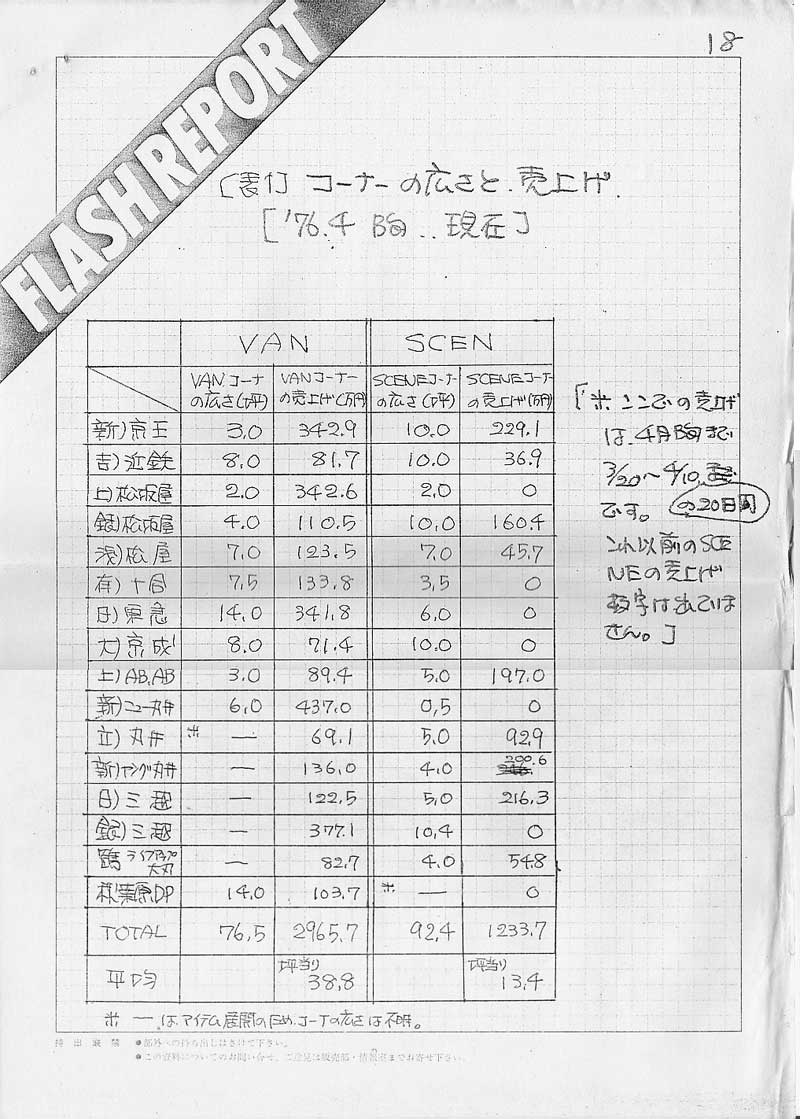 18
FLASH REPORT
[表1] コーナーの広さと、売上げ
['76.4 現在]
VAN SCEN
VANコーナの広さ(坪) VANコーナーの売上げ(万円) SCENEコーナーの広さ(坪) SCENEコーナーの売上げ(万円)
新)京王 3.0 342.9 10.0 229.1
吉)近鉄 8.0 81.7 10.0 36.9
上)松坂屋 2.0 342.6 2.0 0
銀)松坂屋 4.0 110.5 10.0 160.4
浅)松屋 7.0 123.5 7.0 45.7
有)十合 7.5 133.8 3.5 0
日)東急 14.0 341.8 6.0 0
大)京成 8.0 71.4 10.0 0
上)AB.AB 3.0 89.4 5.0 197.0
新)ニュー丸井 6.0 437.0 0.5 0
立)丸井 ※ — 69.1 5.0 92.9
新)ヤング丸井 — 136.0 4.0 200.6
日)三越 — 122.5 5.0 216.3
銀)三越 — 377.1 10.4 0
鶴 大丸 — 82.7 4.0 54.8
秋葉原DP 14.0 103.7 ※ — 0
TOTAL 76.5 2965.7 92.4 1233.7
平均 坪当り 38.8 坪当り 13.4
[※ ここでの売上げ
は、4月旬まで
3/20〜4/10
の20日間
です。
これ以前のSCE
NEの売上げ
数字は出ていま
せん。]
※ — は、アイテム展開のため、コーナの広さは不明。
持出厳禁 ●部外への持ち出しはさけて下さい。
●この資料についてのお問い合せ、ご意見は販売部・情報室までお寄せ下さい。